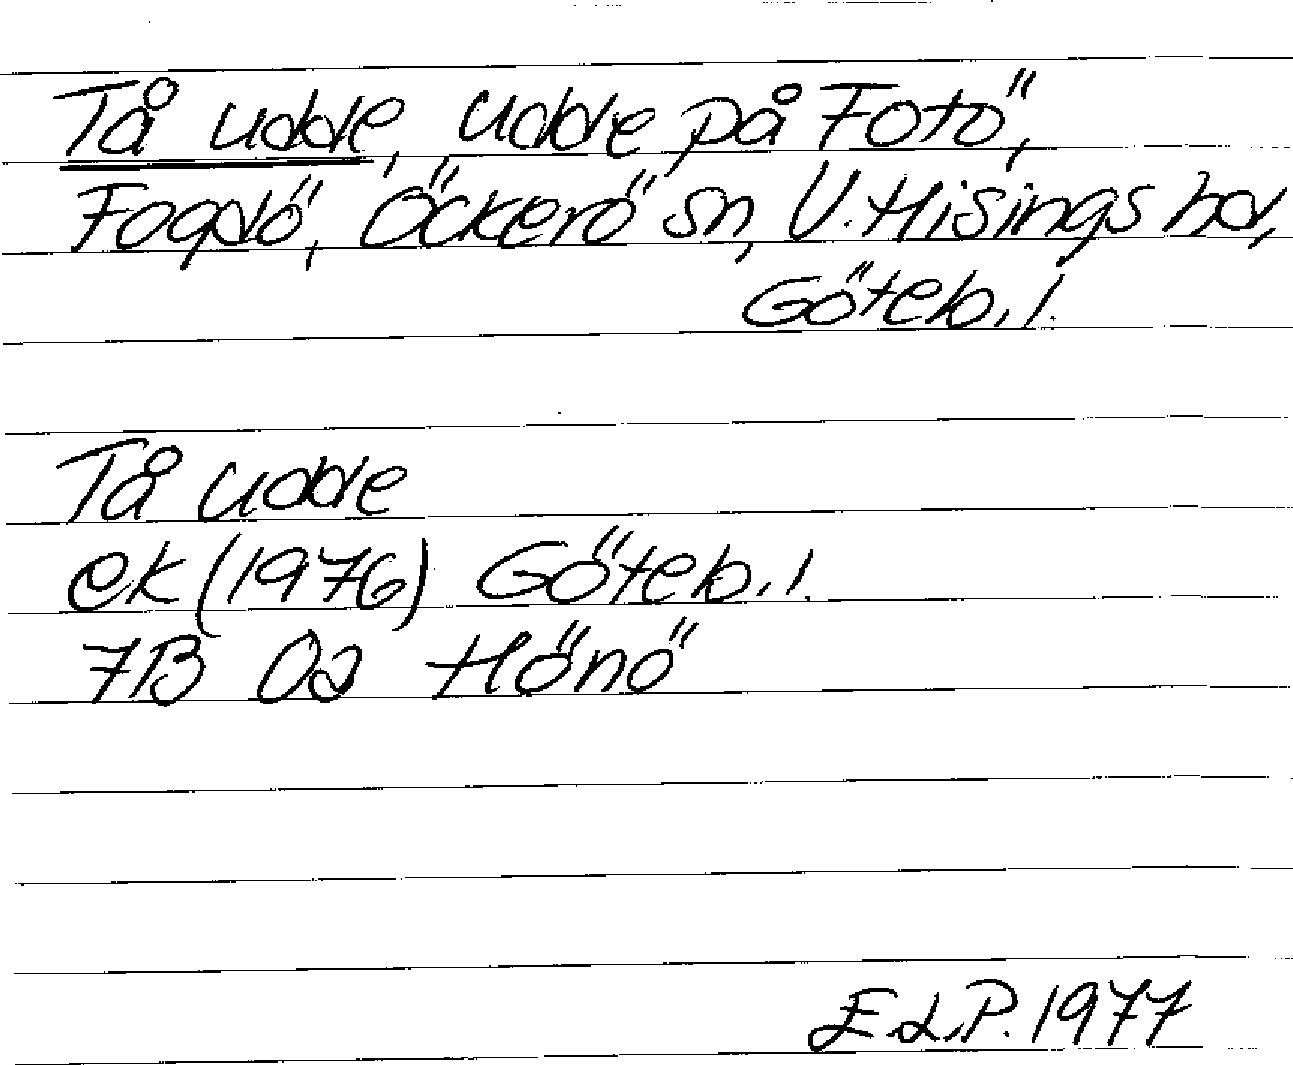 Tå udde, udde på Fotö,
Fogdö, Öckerö sn, V. Hisings hd,
Göteb. l.
Tå udde
ek (1976) Göteb. l.
7B 0a Hönö
E.L.P. 1977